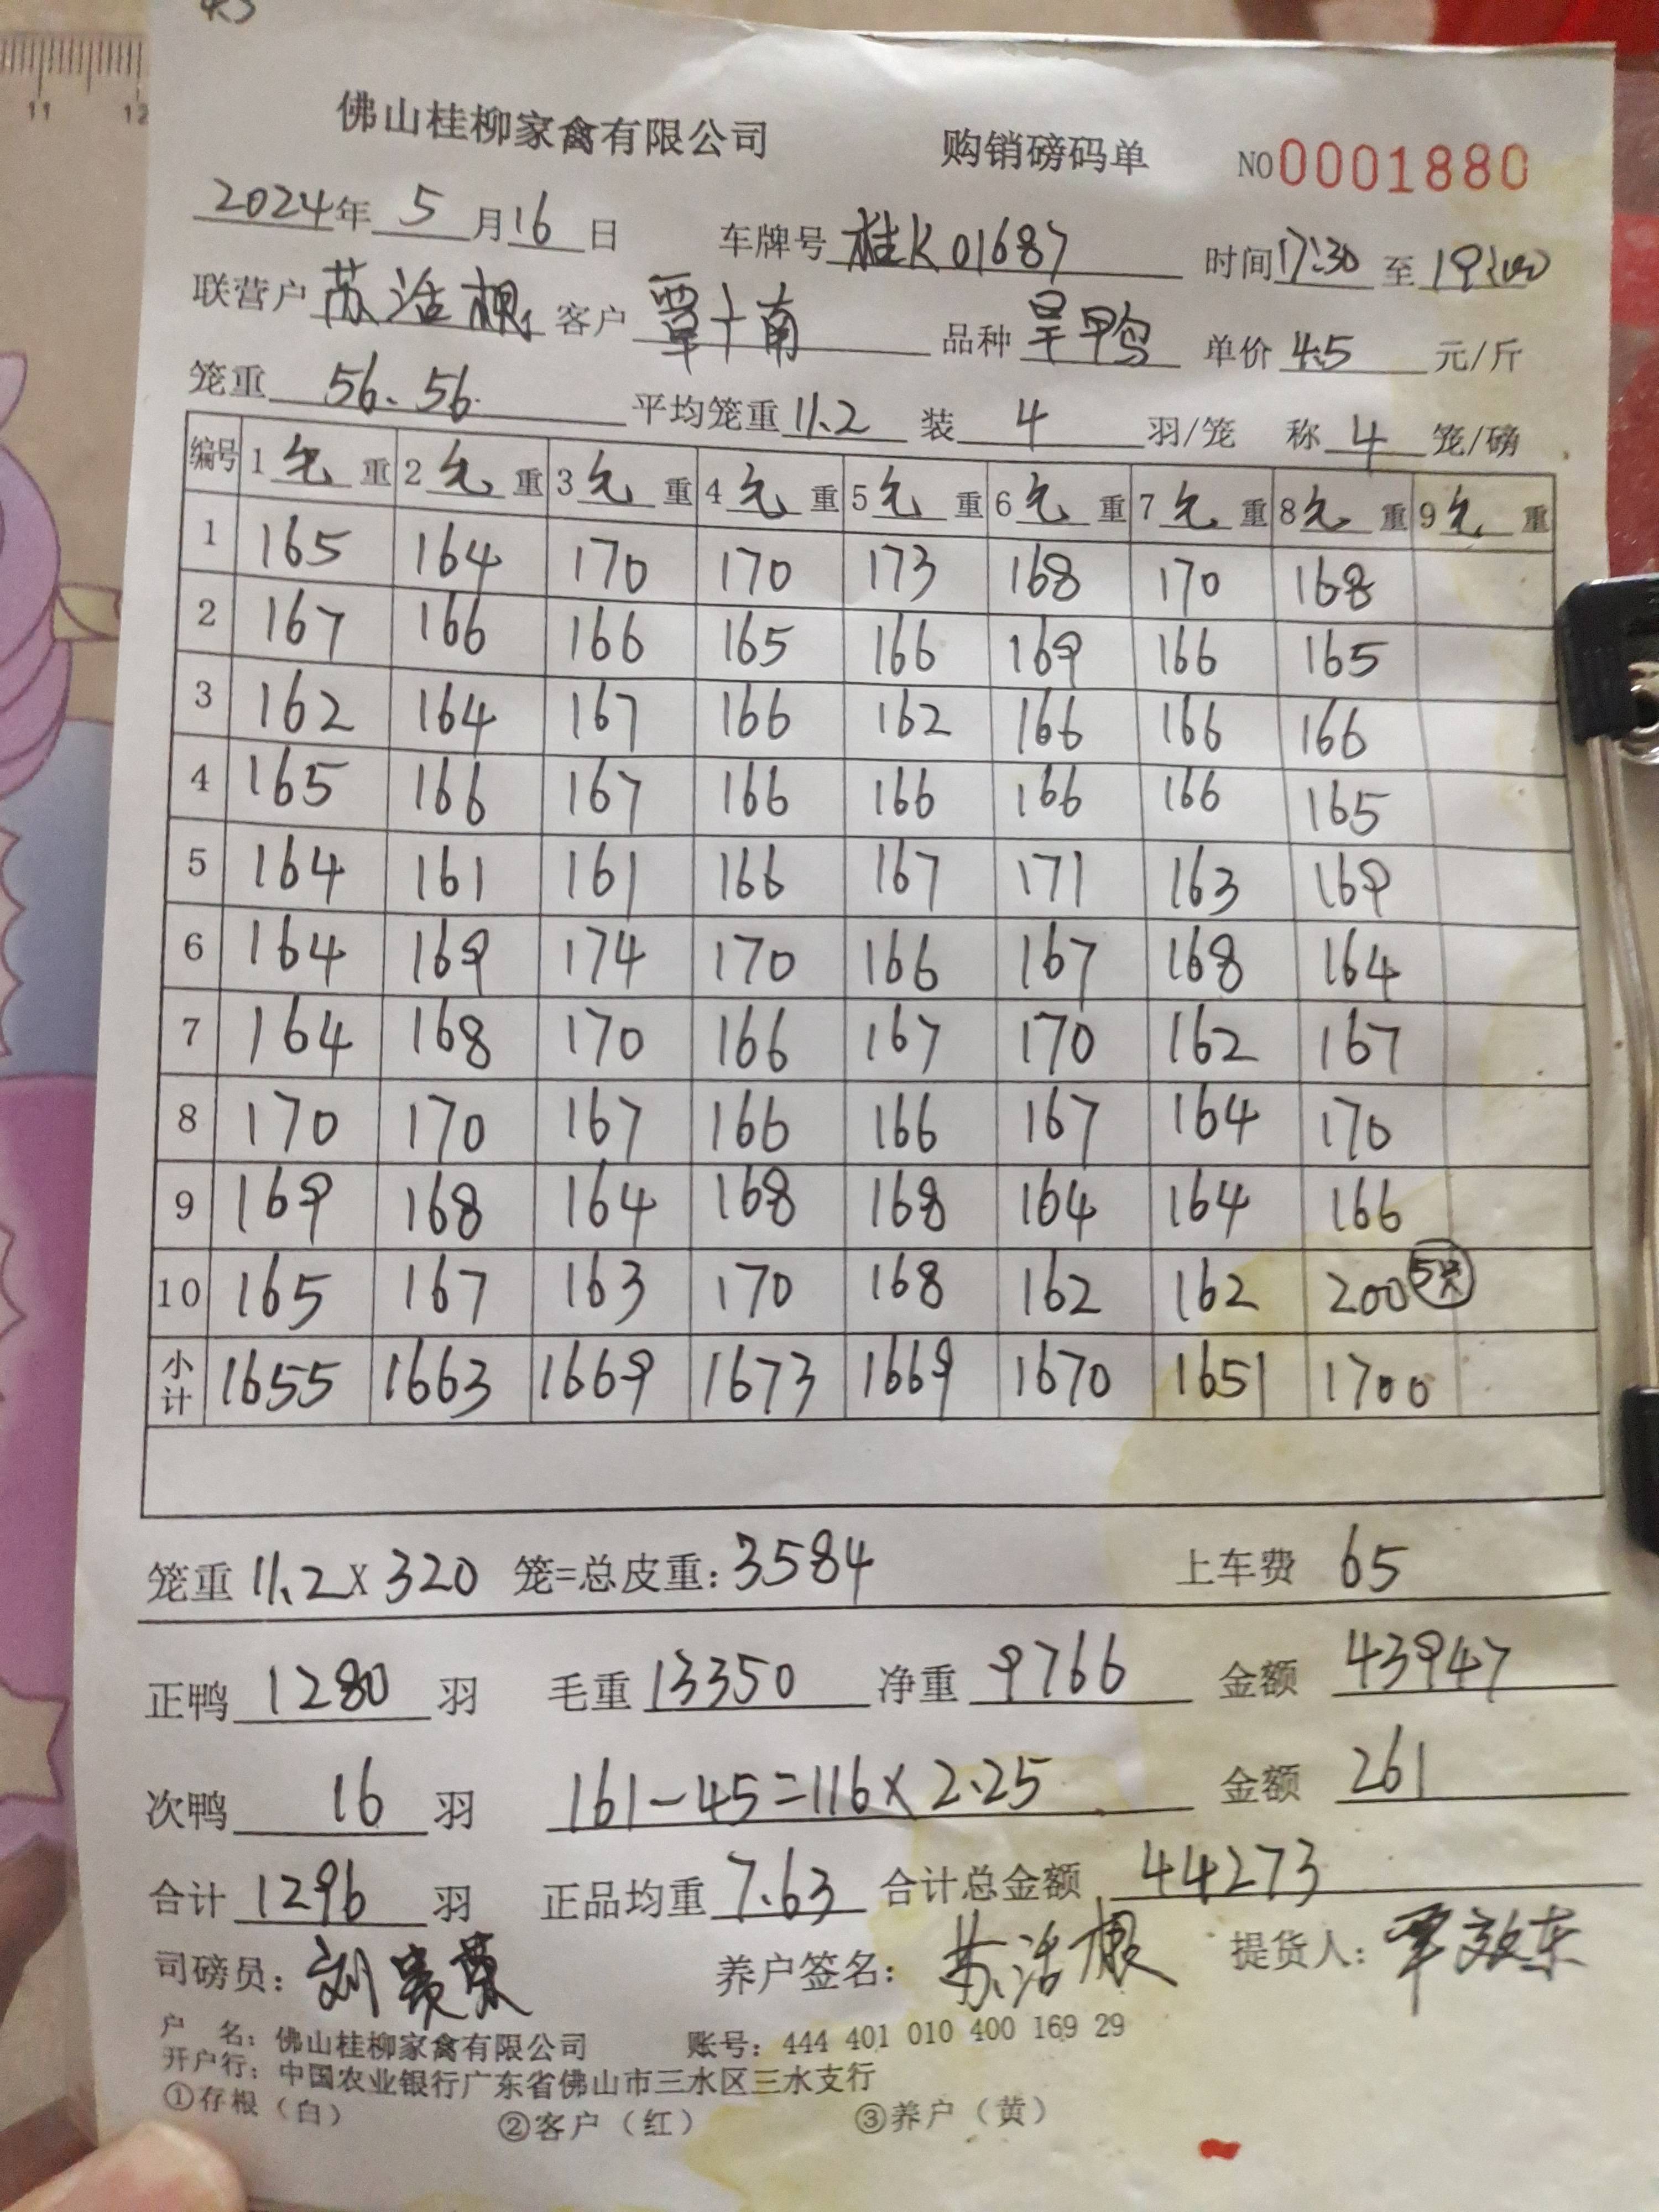 11 12
佛山桂柳家禽有限公司 购销磅码单 NO 0001880
2024年 5 月 16 日 车牌号 桂K01687 时间 17:30 至 19:00
联营户 苏活根 客户 覃十南 品种 呈鸭 单价 4.5 元/斤
笼重 56.56 平均笼重 11.2 装 4 羽/笼 称 4 笼/磅
编号 1 毛 重 2 毛 重 3 毛 重 4 毛 重 5 毛 重 6 毛 重 7 毛 重 8 毛 重 9 毛 重
1 165 164 170 170 173 168 170 168
2 167 166 166 165 166 169 166 165
3 162 164 167 166 162 166 166 166
4 165 166 167 166 166 166 166 165
5 164 161 161 166 167 171 163 169
6 164 169 174 170 166 167 168 164
7 164 168 170 166 167 170 162 167
8 170 170 167 166 166 167 164 170
9 169 168 164 168 168 164 164 166
10 165 167 163 170 168 162 162 200 5只
小计 1655 1663 1669 1673 1669 1670 1651 1700
笼重 11.2 x 320 笼=总皮重: 3584 上车费 65
正鸭 1280 羽 毛重 13350 净重 9766 金额 43947
次鸭 16 羽 161-45=116x2.25 金额 261
合计 1296 羽 正品均重 7.63 合计总金额 44273
司磅员: 刘 养户签名: 苏活根 提货人: 覃效东
户 名: 佛山桂柳家禽有限公司 账号: 444 401 010 400 169 29
开户行: 中国农业银行广东省佛山市三水区三水支行
①存根（白） ②客户（红） ③养户（黄）